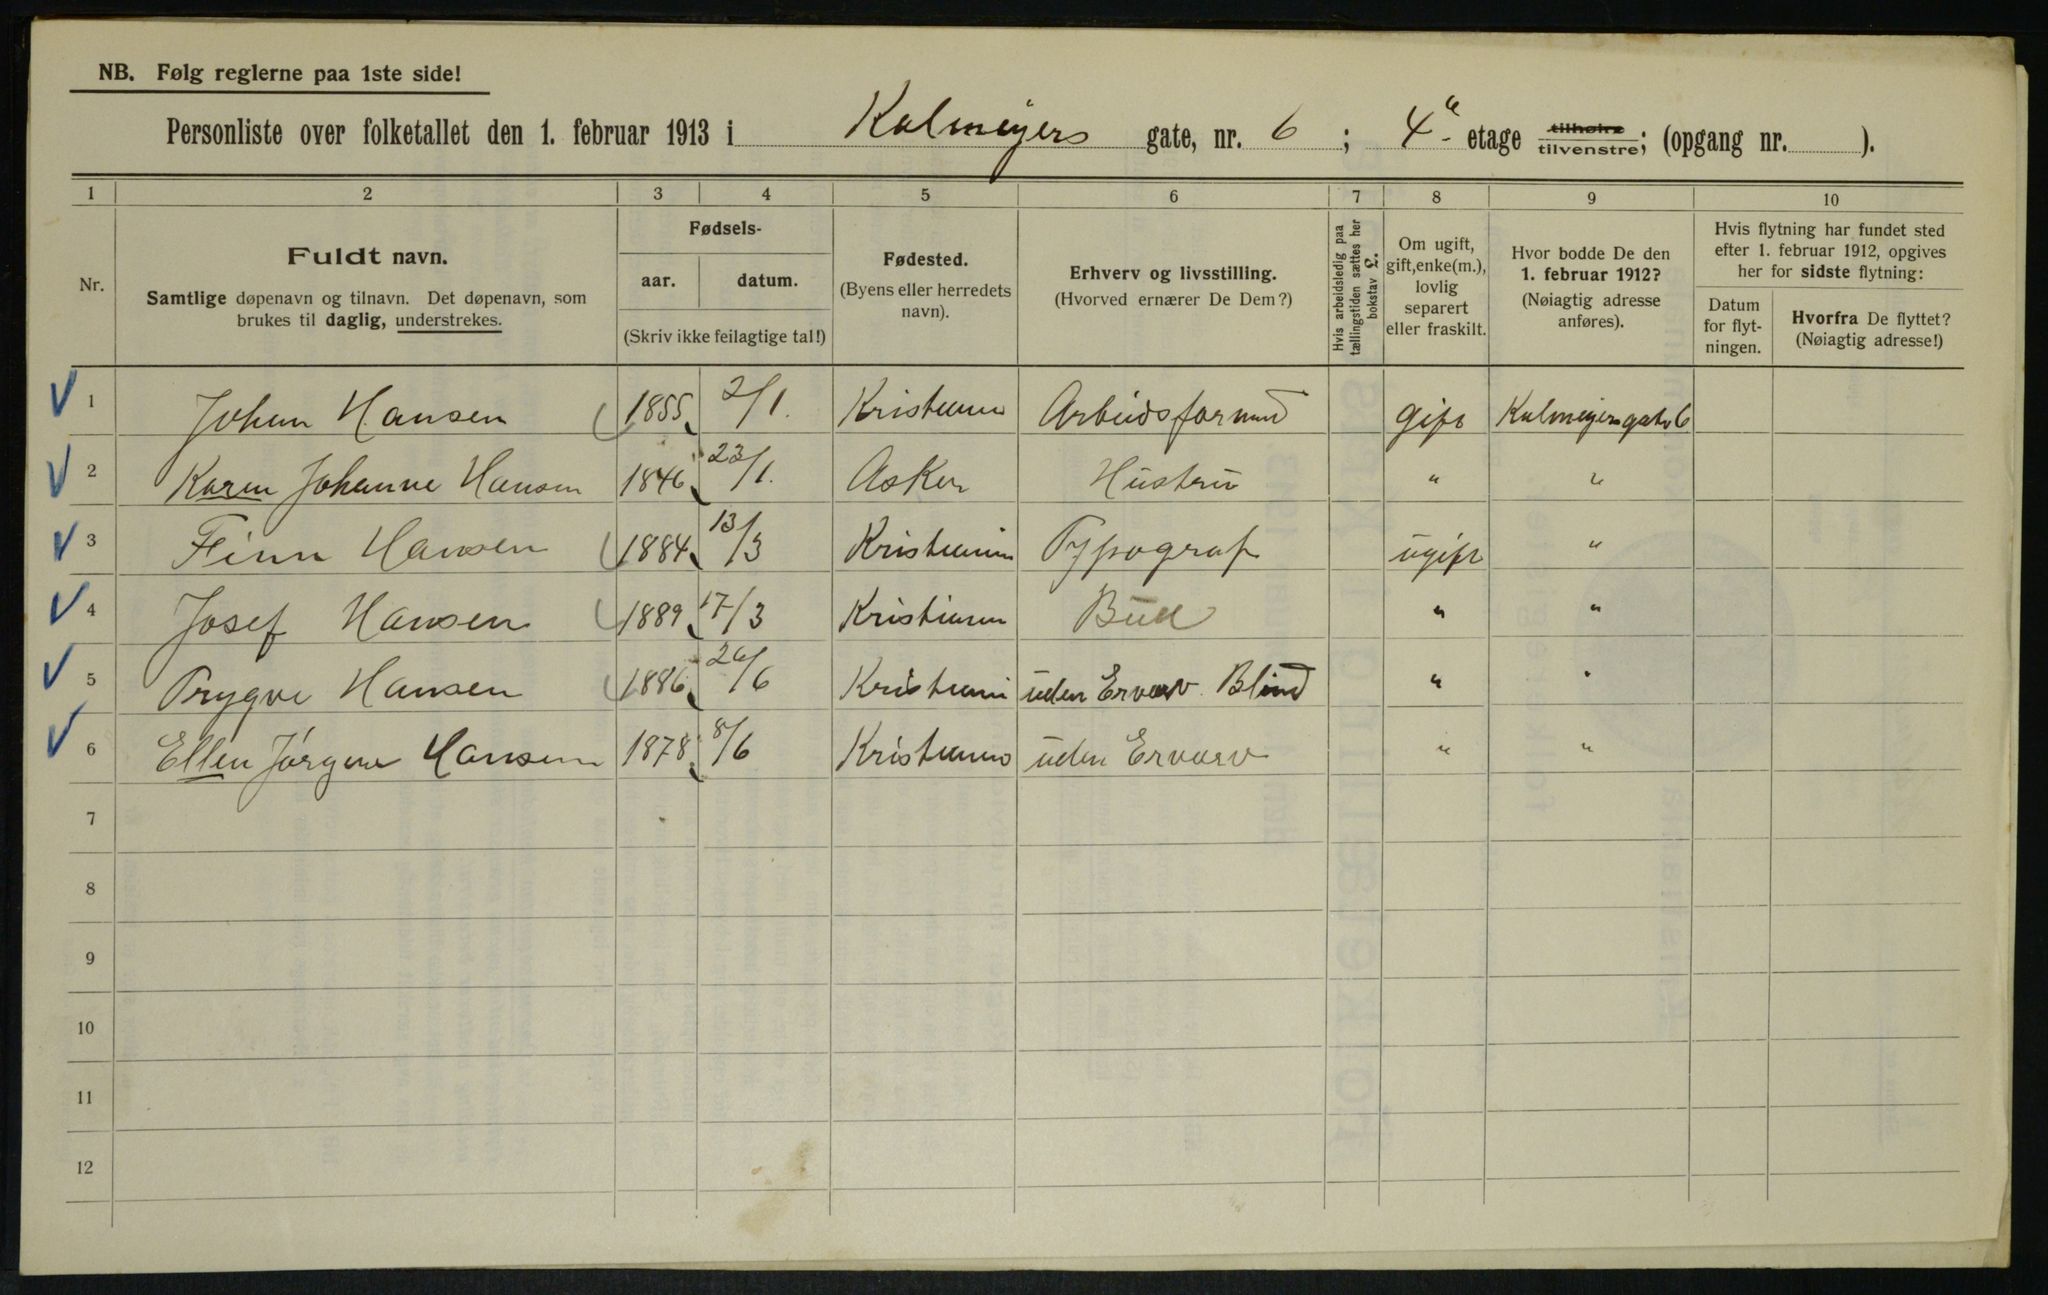 NB. Følg reglerne paa 1ste side!
Personliste over folketallet den 1. februar 1913 i Kalmeyers gate, nr. 6 ; 4e etage tilhøire tilvenstre; (opgang nr. ).
1 2 3 4 5 6 7 8 9 10
Nr.
Fuldt navn.
Samtlige døpenavn og tilnavn. Det døpenavn, som
brukes til daglig, understrekes.
Fødsels-
aar. datum.
(Skriv ikke feilagtige tal!)
Fødested.
(Byens eller herredets
navn).
Erhverv og livsstilling.
(Hvorved ernærer De Dem?)
Hvis arbeidsledig paa
tællingstiden sættes her
bokstav L.
Om ugift,
gift, enke(m.),
lovlig
separert
eller fraskilt.
Hvor bodde De den
1. februar 1912?
(Nøiagtig adresse
anføres).
Hvis flytning har fundet sted
efter 1. februar 1912, opgives
her for sidste flytning:
Datum
for flyt-
ningen.
Hvorfra De flyttet?
(Nøiagtig adresse!)
1 Johan Hansen 1855 2/1. Kristiania Arbeidsformand gift Kalmeyersgate 6
2 Karen Johanne Hansen 1846 23/1. Asker Hustru " "
3 Finn Hansen 1884 13/3 Kristiania Typograf ugift "
4 Josef Hansen 1889 17/3 Kristiania Bud " "
5 Trygve Hansen 1886 26/6 Kristiania uden Erværv Blind " "
6 Ellen Jørgine Hansen 1878 8/6 Kristiania uden Erværv " "
7
8
9
10
11
12